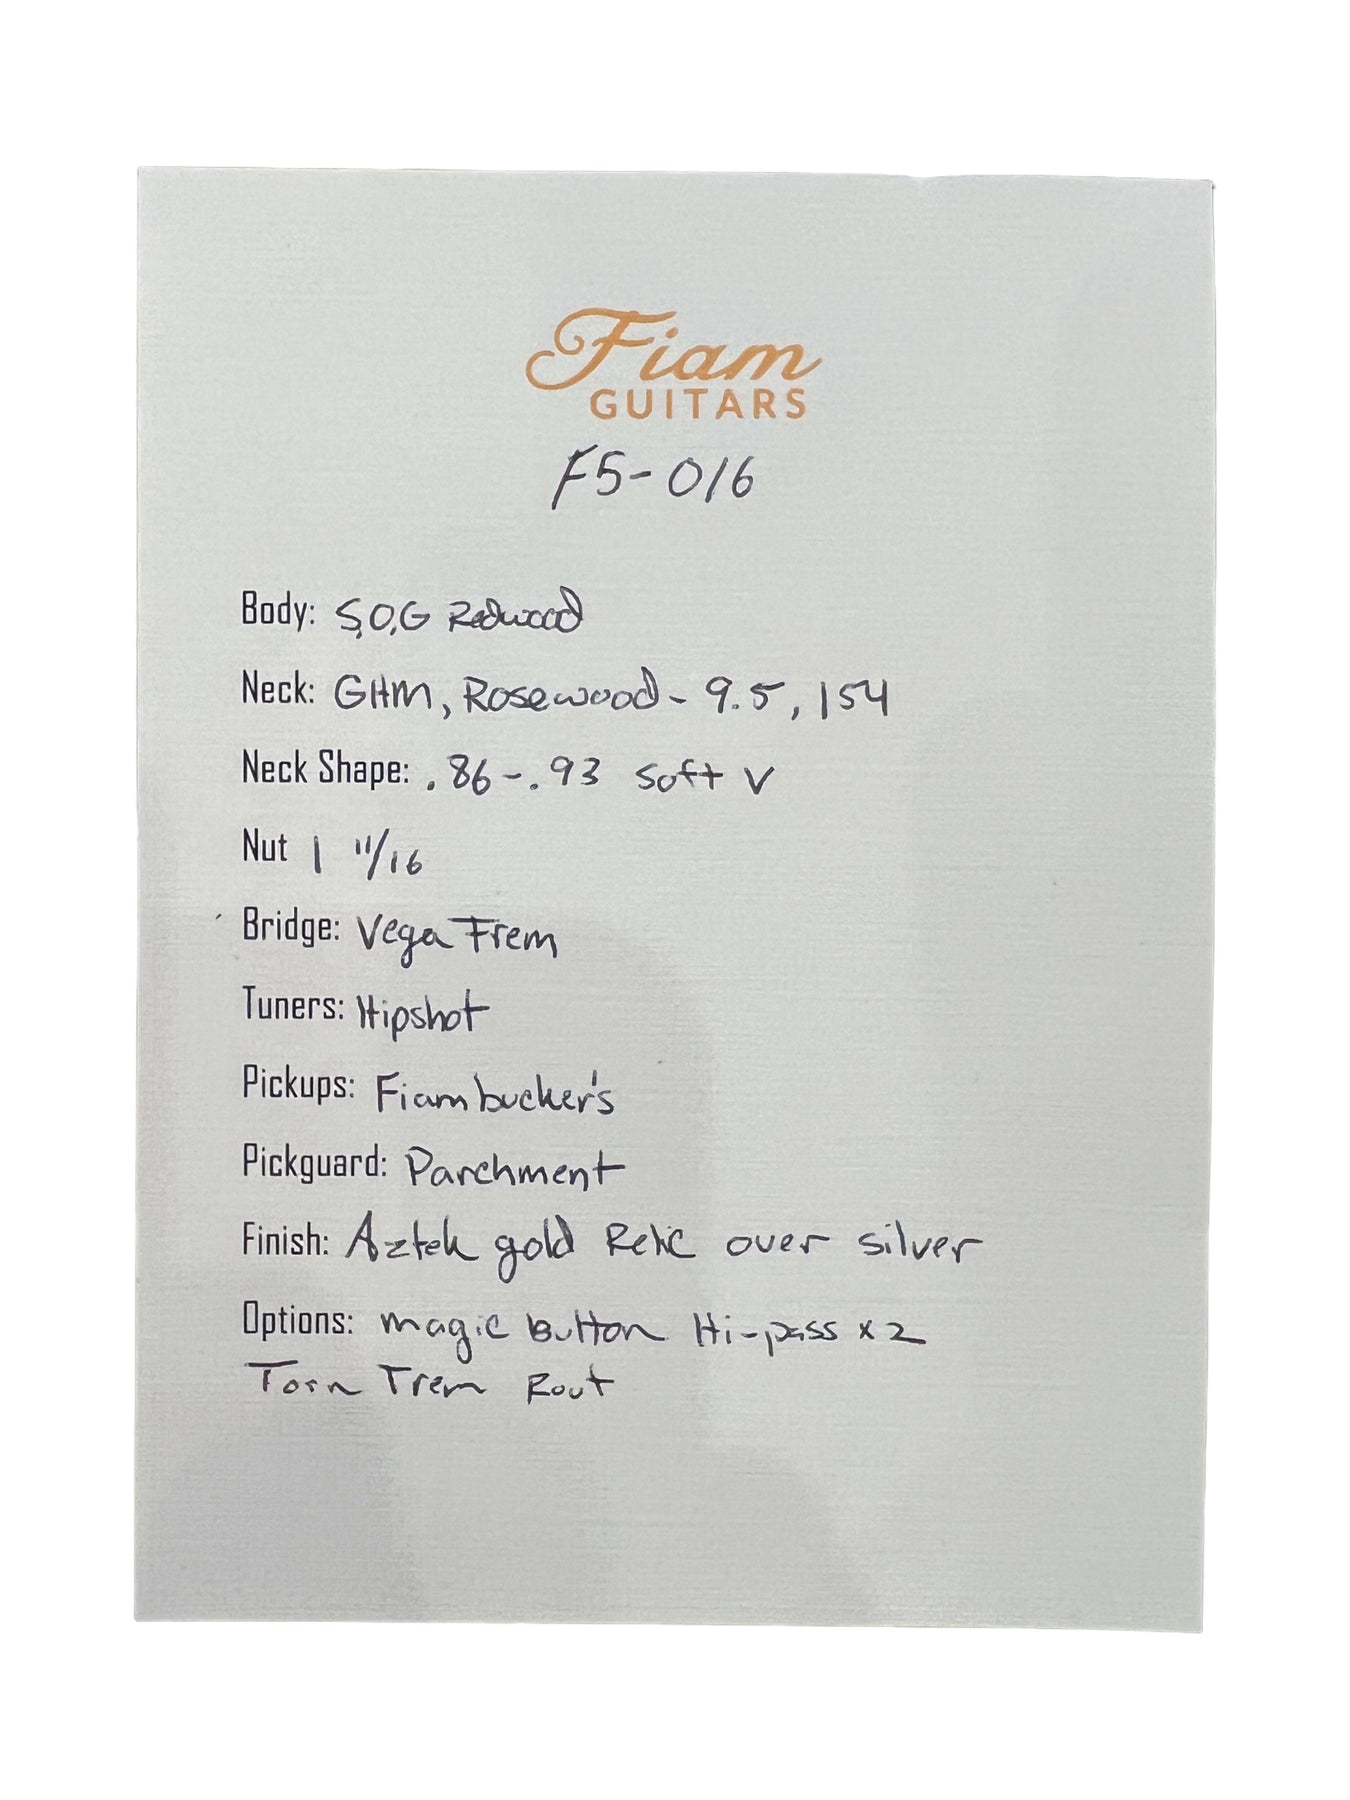 Fiam
GUITARS
F5-016
Body: S.O.G Redwood
Neck: GHM, Rosewood - 9.5, 154
Neck Shape: .86-.93 Soft V
Nut 1 11/16
Bridge: Vega Trem
Tuners: Hipshot
Pickups: Fiambucker's
Pickguard: Parchment
Finish: Aztek gold Relic over silver
Options: magic button Hi-pass x2
Torn Trem Rout